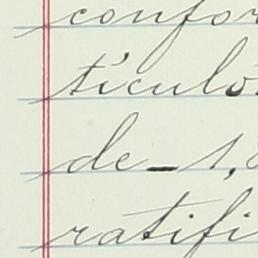 confor
tículo
de 1,
ratifi